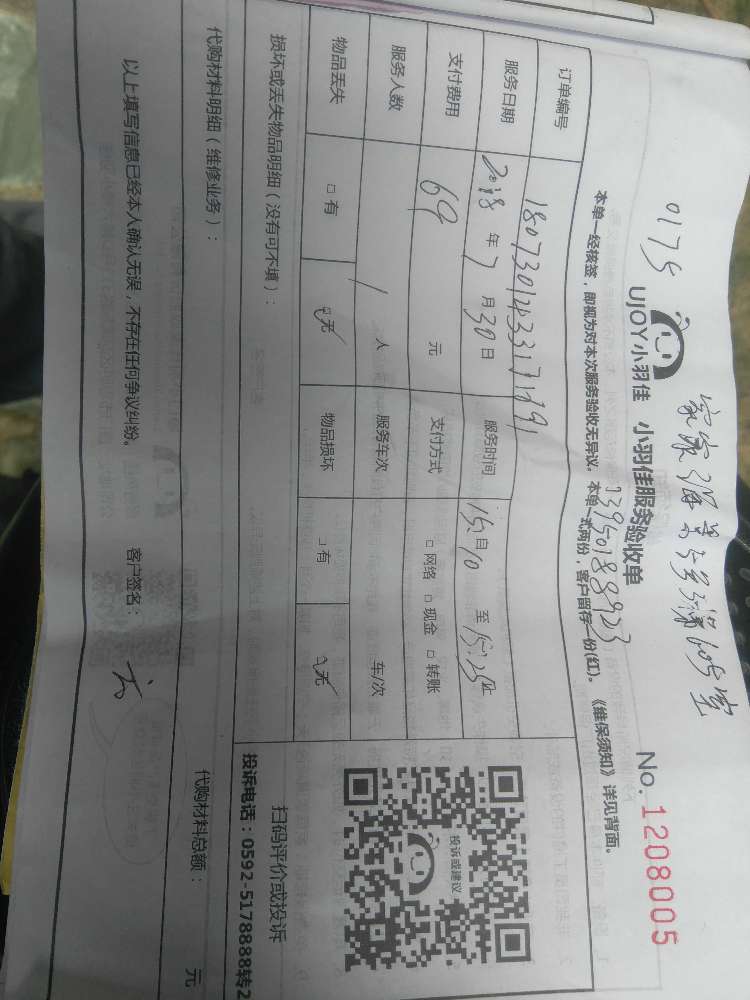 0175
No.1208005
UJOY小羽佳 小羽佳服务验收单
13950188923
本单一经核签，即视为对本次服务验收无异议，本单一式两份，客户留存一份(红)。《维保须知》详见背面。
订单编号 1807301433171191
服务日期 2018年7月30日 服务时间 自15:10至15:25止
支付费用 69元 支付方式 □网络 □现金 □转账
服务人数 1人 服务车次 车/次
物品丢失 □有 □无 物品损坏 □有 □无
损坏或丢失物品明细（没有可不填）：
投诉或建议
扫码评价或投诉
投诉电话：0592-5178888转2
代购材料明细（维修业务）：
代购材料总额： 元
以上填写信息已经本人确认无误，不存在任何争议纠纷。 客户签名：